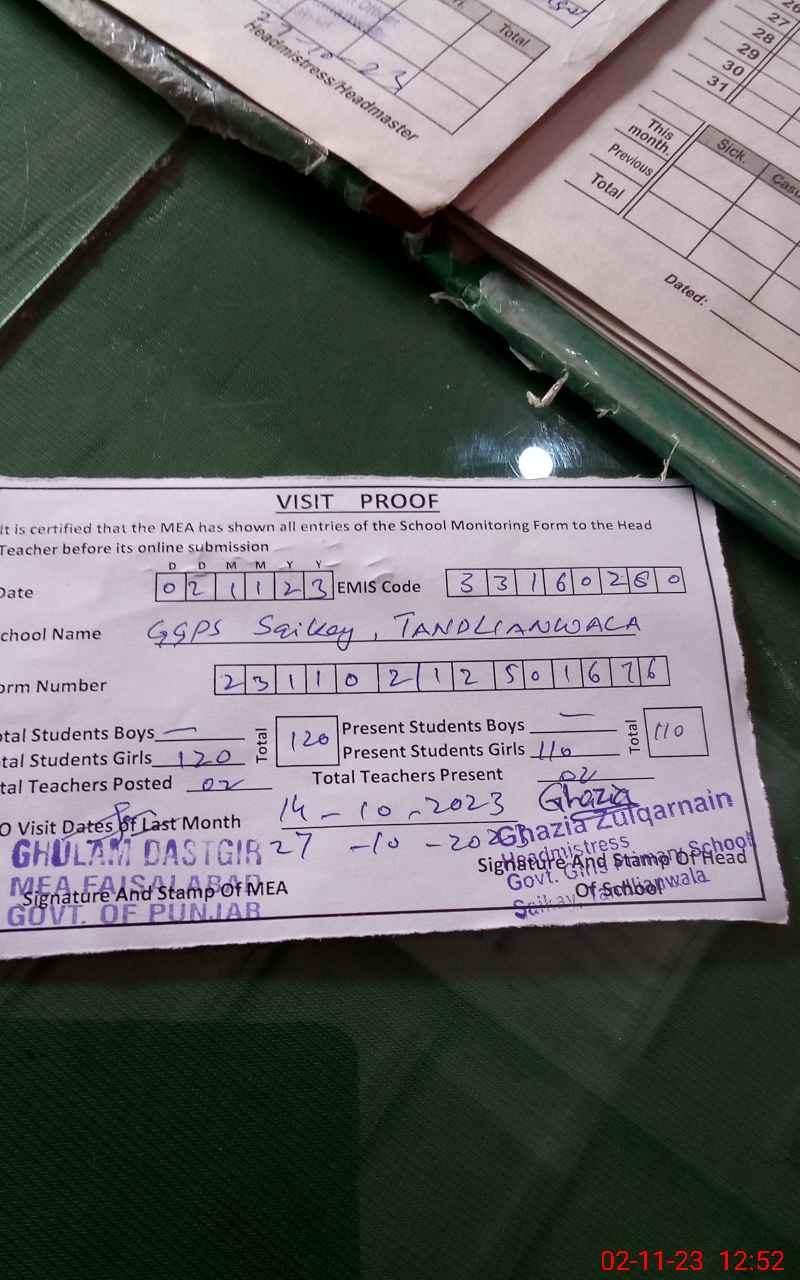 Total
27-10-23
Headmistress/Headmaster
26
27
28
29
30
31
This month.
Previous
Total
Sick.
Casu
Dated:
VISIT PROOF
It is certified that the MEA has shown all entries of the School Monitoring Form to the Head
Teacher before its online submission
D D M M Y Y
Date 0 2 1 1 2 3 EMIS Code 3 3 1 6 0 2 8 0
chool Name GGPS Saikay, TANDLIANWALA
orm Number 2 3 1 1 0 2 1 2 5 0 1 6 7 6
otal Students Boys — Total 120 Present Students Boys — Total 110
otal Students Girls 120 Present Students Girls 110
tal Teachers Posted 02 Total Teachers Present 02
O Visit Dates of Last Month 14-10-2023 Ghazia
27-10-2023
GHULAM DASTGIR
MEA FAISALABAD
GOVT. OF PUNJAB
Signature And Stamp Of MEA
Ghazia Zulqarnain
Headmistress
Govt. Girls Primary School
Saikay, Tandlianwala
Signature And Stamp Of Head
Of School
02-11-23 12:52